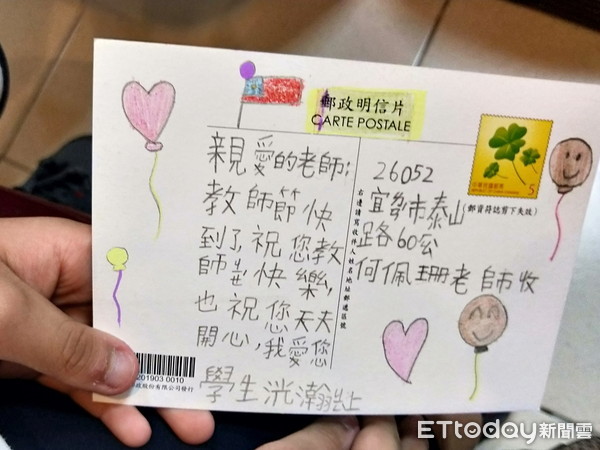 郵政明信片
CARTE POSTALE
親愛的老師:
教師節快
到了,祝您教
師节快樂,
也祝您天天
開心,我愛您
學生洸瀚上
5
(郵資符誌剪下失效)
右邊請寫收件人姓名地址郵遞區號
26052
宜蘭市泰山
路60公
何佩珊老師收
201903 0010
股份有限公司發行
ETtoday新聞雲